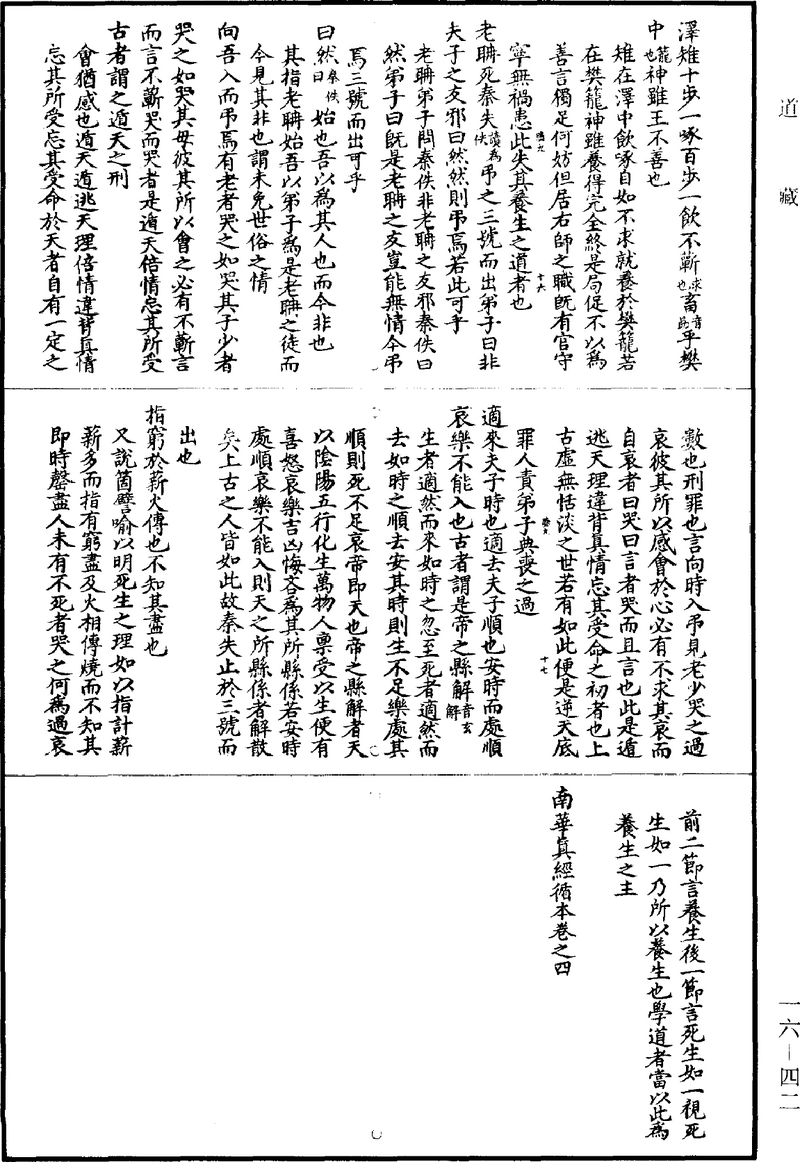 道藏
澤雉十步一啄百步一飲不蘄求也畜音此乎樊
中籠也神雖王不善也
雉在澤中飲啄自如不求就養於樊籠若
在樊籠神雖養得完全終是局促不以為
善言獨足何妨但居右師之職既有官守
寧無禍患此失其養生之道者也
老聃死秦失讀為佚弔之三號而出弟子曰非
夫子之友邪曰然然則弔焉若此可乎
老聃弟子問秦佚非老聃之友邪秦佚曰
然弟子曰既是老聃之友豈能無情今弔
焉三號而出可乎
曰然秦佚曰始也吾以為其人也而今非也
其指老聃始吾以弟子為是老聃之徒而
今見其非也謂未免世俗之情
向吾入而弔焉有老者哭之如哭其子少者
哭之如哭其母彼其所以會之必有不蘄言
而言不蘄哭而哭者是遁天倍情忘其所受
古者謂之遁天之刑
會猶感也遁天遁逃天理倍情違背真情
忘其所受忘其受命於天者自有一定之
數也刑罪也言向時入弔見老少哭之過
哀彼其所以感會於心必有不求其哀而
自哀者曰哭曰言者哭而且言也此是遁
逃天理違背真情忘其受命之初者也上
古虛無恬淡之世若有如此便是逆天底
罪人責弟子典喪之過
適來夫子時也適去夫子順也安時而處順
哀樂不能入也古者謂是帝之縣解音玄解
生者適然而來如時之忽至死者適然而
去如時之順去安其時則生不足樂處其
順則死不足哀帝即天也帝之縣解者天
以陰陽五行化生萬物人稟受以生便有
喜怒哀樂吉凶悔吝為其所縣係若安時
處順哀樂不能入則天之所縣係者解散
矣上古之人皆如此故秦失止於三號而
出也
指窮於薪火傳也不知其盡也
又說箇譬喻以明死生之理如以指計薪
薪多而指有窮盡及火相傳燒而不知其
即時罄盡人未有不死者哭之何為過哀
前二節言養生後一節言死生如一視死
生如一乃所以養生也學道者當以此為
養生之主
南華真經循本卷之四
一六－四二